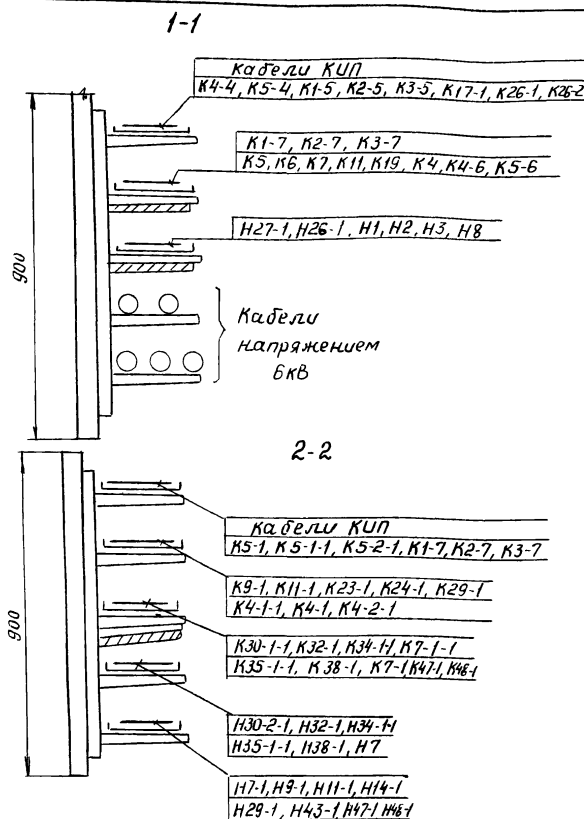 1-1
кабели КИП
К4-4, К5-4, К1-5, К2-5, К3-5, К17-1, К26-1, К26-2
К1-7, К2-7, К3-7
К5, К6, К7, К11, К19, К4, К4-6, К5-6
Н27-1, Н26-1, Н1, Н2, Н3, Н8
900
Кабели
напряжением
6кВ
2-2
кабели КИП
К5-1, К5-1-1, К5-2-1, К1-7, К2-7, К3-7
К9-1, К11-1, К23-1, К24-1, К29-1
К4-1-1, К4-1, К4-2-1
900
К30-1-1, К32-1, К34-1-1, К7-1-1
К35-1-1, К38-1, К7-1, К47-1, К48-1
Н30-2-1, Н32-1, Н34-1-1
Н35-1-1, Н38-1, Н7
Н7-1, Н9-1, Н11-1, Н14-1
Н29-1, Н43-1, Н47-1 Н48-1